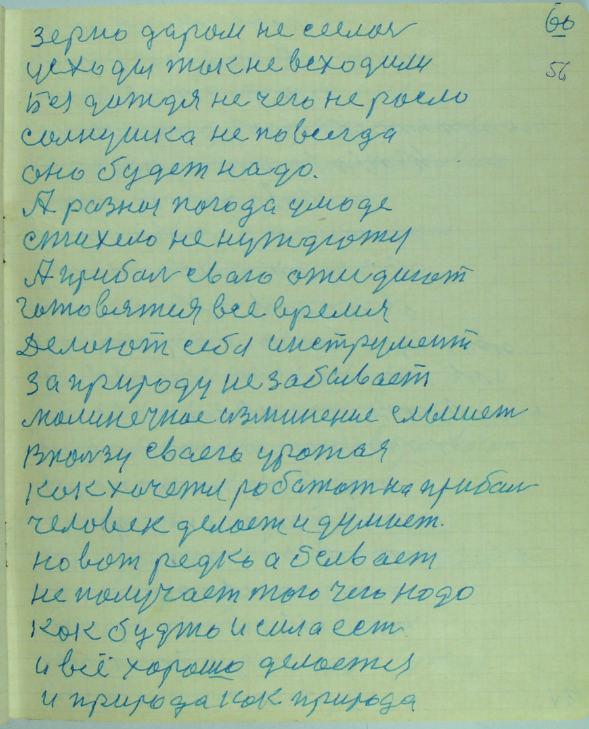 60
56
зерно даром не сеелоя
усходы так не всходили
Без дождя не чего не росло
солнушка не повсегда
оно будет надо.
А разная погода у моде
стихело не нуждгожу
А прибал сваго ожидают
готовятся все время
Делоют себя инструмент
за природу не забывает
малинечное изминение слышет
в ползу сваего урожая
как хочетя работат на прибал
человек делает и думает.
но вот редко а бывает
не получает того чего надо
как будто и сила ест
и всё хорошо делается
и природа как природа